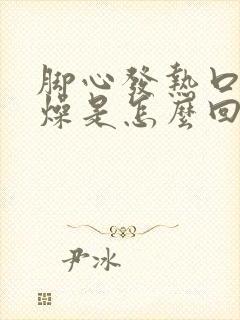 脚心發熱口
燥是怎麼回
尹冰